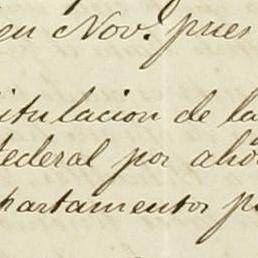 en Nov. pues
itulacion de la
federal por aho
partamentos p